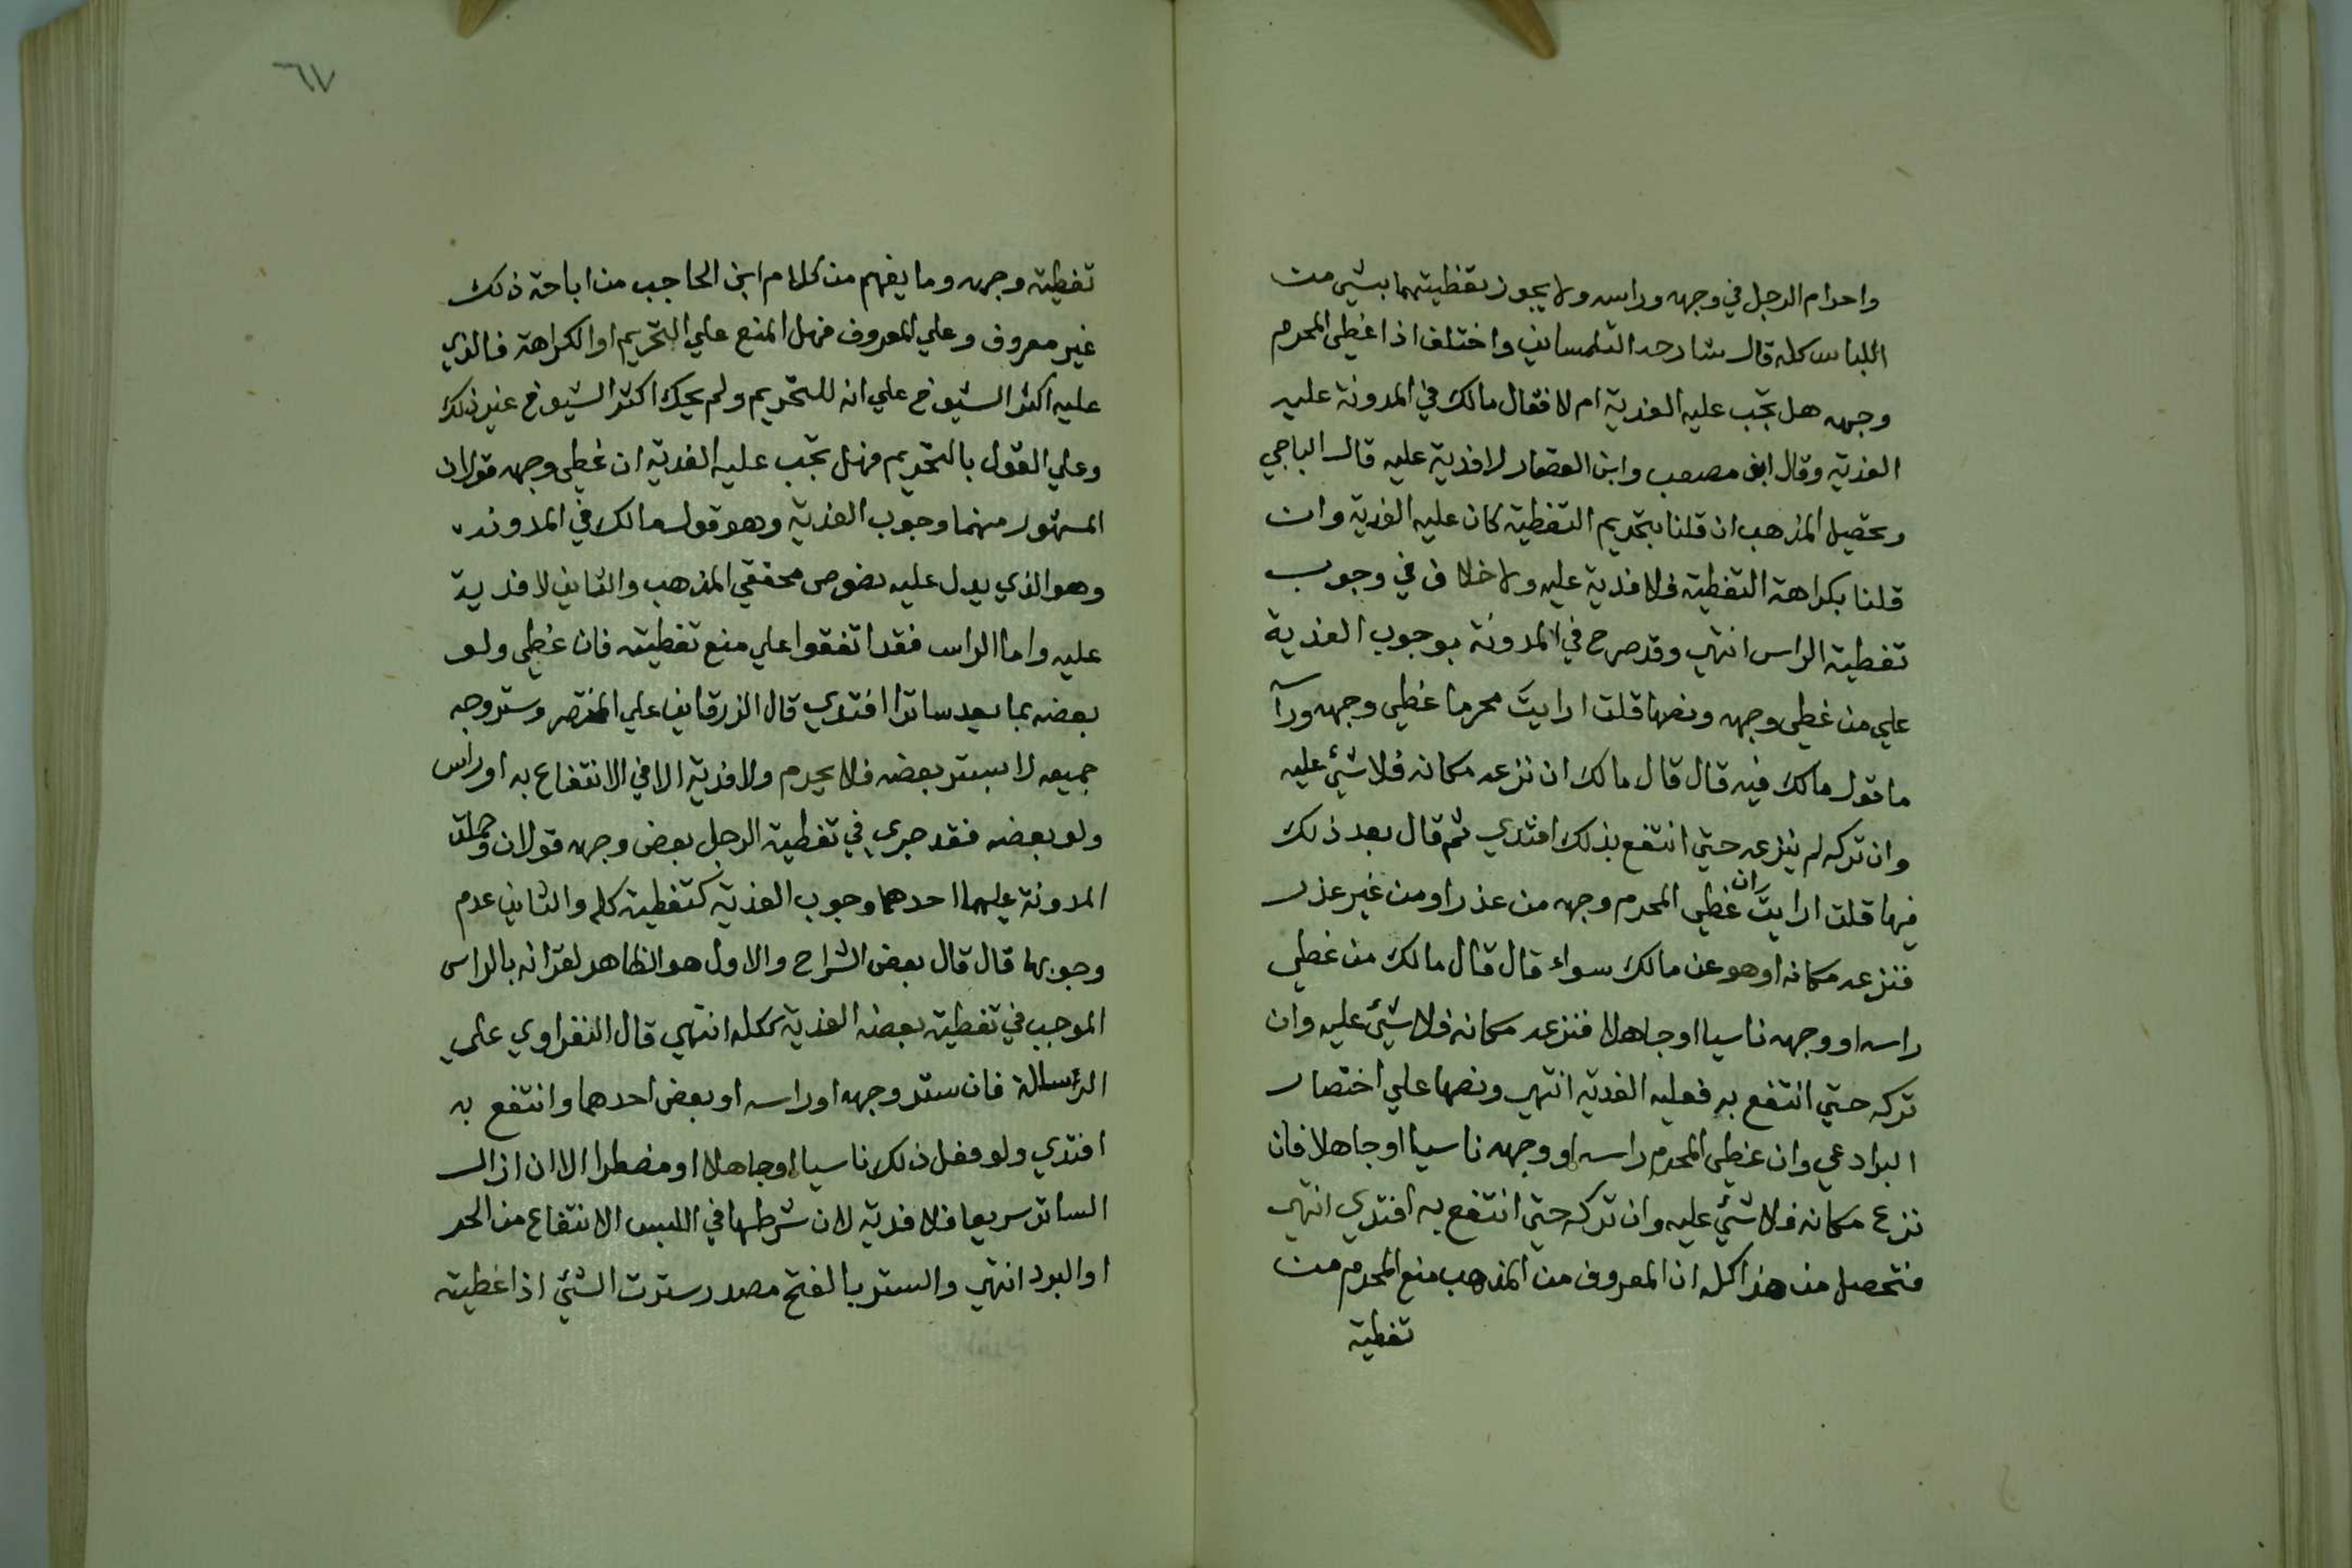 واحرام الرجل في وجهه وراسه ولا يجوز تغطيتهما بشي من
اللباس كله قال شارحه التلمساني واختلف اذا غطي المحرم
وجهه هل تجب عليه الفدية ام لا فقال مالك في المدونة عليه
الفدية وقال ابو مصعب وابن القصار لا فدية عليه قال الباجي
وتحصيل المذهب ان قلنا بتحريم التغطية كان عليه الفدية وان
قلنا بكراهة التغطية فلا فدية عليه ولا خلاف في وجوب
تغطية الراس انتهي وقد صرح في المدونة بوجوب الفدية
علي من غطي وجهه ونصها قلت ارايت محرما غطي وجهه ورآسه
ما قول مالك فيه قال قال مالك ان نزعه مكانه فلا شيئ عليه
وان تركه لم ينزعه حتي انتفع بذلك افتدي ثم قال بعد ذلك
فيها قلت ارايت ان غطي المحرم وجهه من عذر او من غير عذر
فنزعه مكانه اوهو عن مالك سواء قال قال مالك من غطي
راسه او وجهه ناسيا او جاهلا فنزعه مكانه فلا شيئ عليه وان
تركه حتي انتفع به فعليه الفدية انتهي ونصها علي اختصار
البرادعي وان غطي المحرم راسه او وجهه ناسيا او جاهلا فان
نزع مكانه فلا شيئ عليه وان تركه حتي انتفع به افتدي انتهي
فتحصل من هذا كله ان المعروف من المذهب منع المحرم من
تغطية
٦٧
تغطية وجهه وما يفهم من كلام ابن الحاجب من اباحة ذلك
غير معروف وعلي المعروف فهل المنع علي التحريم او الكراهة فالذي
عليه اكثر الشيوخ علي انه للتحريم ولم يحك اكثر الشيوخ غير ذلك
وعلي القول بالتحريم فهل تجب عليه الفدية ان غطي وجهه قولان
المشهور منهما وجوب الفدية وهو قول مالك في المدونة
وهو الذي يدل عليه نصوص محققي المذهب والثاني لا فدية
عليه واما الراس فقد اتفقوا علي منع تغطيته فان غطي ولو
بعضه بما يعد ساترا افتدي قال الزرقاني علي المختصر وستر وجه
جميعه لا بستر بعضه فلا يحرم ولا فدية الا في الانتفاع به او راس
ولو بعضه فقد جري في تغطية الرجل بعض وجهه قولان وحملت
المدونة عليهما احدهما وجوب الفدية كتغطية كله والثاني عدم
وجوبها قال قال بعض الشراح والاول هو الظاهر لقرانه بالراس
الموجب في تغطية بعضه الفدية ككله انتهي قال النفراوي علي
الرسالة فان ستر وجهه او راسه او بعض احدهما وانتفع به
افتدي ولو فعل ذلك ناسيا او جاهلا او مضطرا الا ان ازال
الساتر سريعا فلا فدية لان شرطها في اللبس الانتفاع من الحر
او البرد انتهي والستر بالفتح مصدر سترت الشيئ اذا غطيته